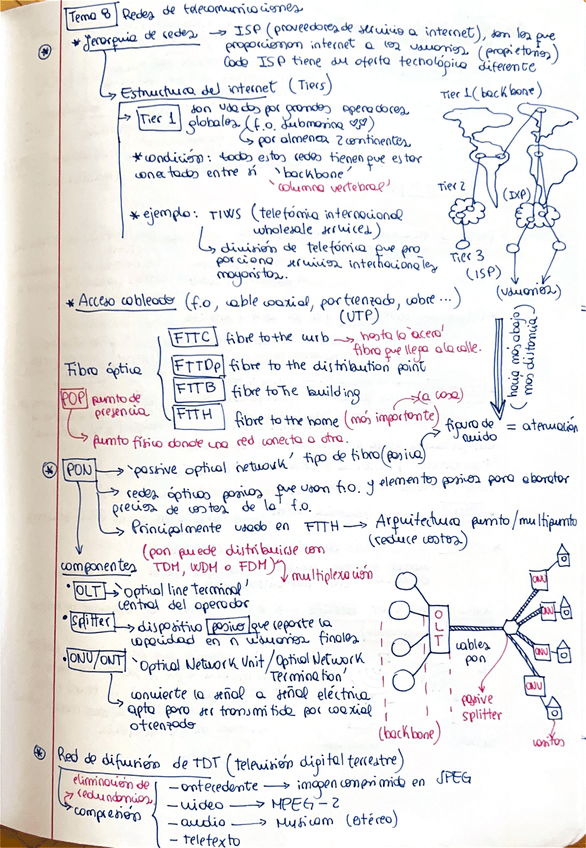 Tema 8 Redes de telecomunicaciones
* Jerarquía de redes → ISP (proveedores de servicio a internet), son los que
proporcionan internet a los usuarios (propietarios)
Cada ISP tiene su oferta tecnológica diferente
Estructura del internet (Tiers)
Tier 1 son usados por grandes operadores
globales (f.o. submarina)
por al menos 2 continentes
* condición: todas estas redes tienen que estar
conectadas entre sí 'backbone'
'columna vertebral'
* ejemplo: TIWS (telefónica internacional
wholesale services)
división de telefónica que pro
porciona servicios internacionales
mayoristas.
Tier 1 (backbone)
Tier 2
(IXP)
Tier 3
(ISP)
(usuarios)
* Acceso cableado (f.o, cable coaxial, par trenzado, cobre ...)
(UTP)
Fibra óptica
FTTC fibre to the curb → hasta la 'acera'
fibra que llega a la calle.
FTTDp fibre to the distribution point
FTTB fibre to the building
FTTH fibre to the home (más importante)
(a casa)
POP punto de
presencia
punto físico donde una red conecta a otra.
(hacia más abajo)
más distancia
figura de
ruido = atenuación
PON → 'passive optical network' tipo de fibra (pasiva)
→ redes ópticas pasivas que usan f.o. y elementos pasivos para abaratar
precios de costes de la f.o.
→ Principalmente usado en FTTH → Arquitectura punto/multipunto
(reduce costos)
(pon puede distribuirse con
TDM, WDM o FDM)
multiplexación
componentes
• OLT → 'optical line terminal'
central del operador
• Splitter → dispositivo pasivo que reparte la
capacidad en n usuarios finales
• ONU/ONT 'Optical Network Unit/Optical Network
Termination'
convierte la señal a señal eléctrica
apta para ser transmitida por coaxial
o trenzado
OLT
cables
pon
ONU
ONU
ONU
ONU
pasive
splitter
(backbone)
* Red de difusión de TDT (televisión digital terrestre)
eliminación de
redundancias
compresión
- antecedente → imagen comprimida en JPEG
- video → MPEG-2
- audio → Musicam (estéreo)
- teletexto